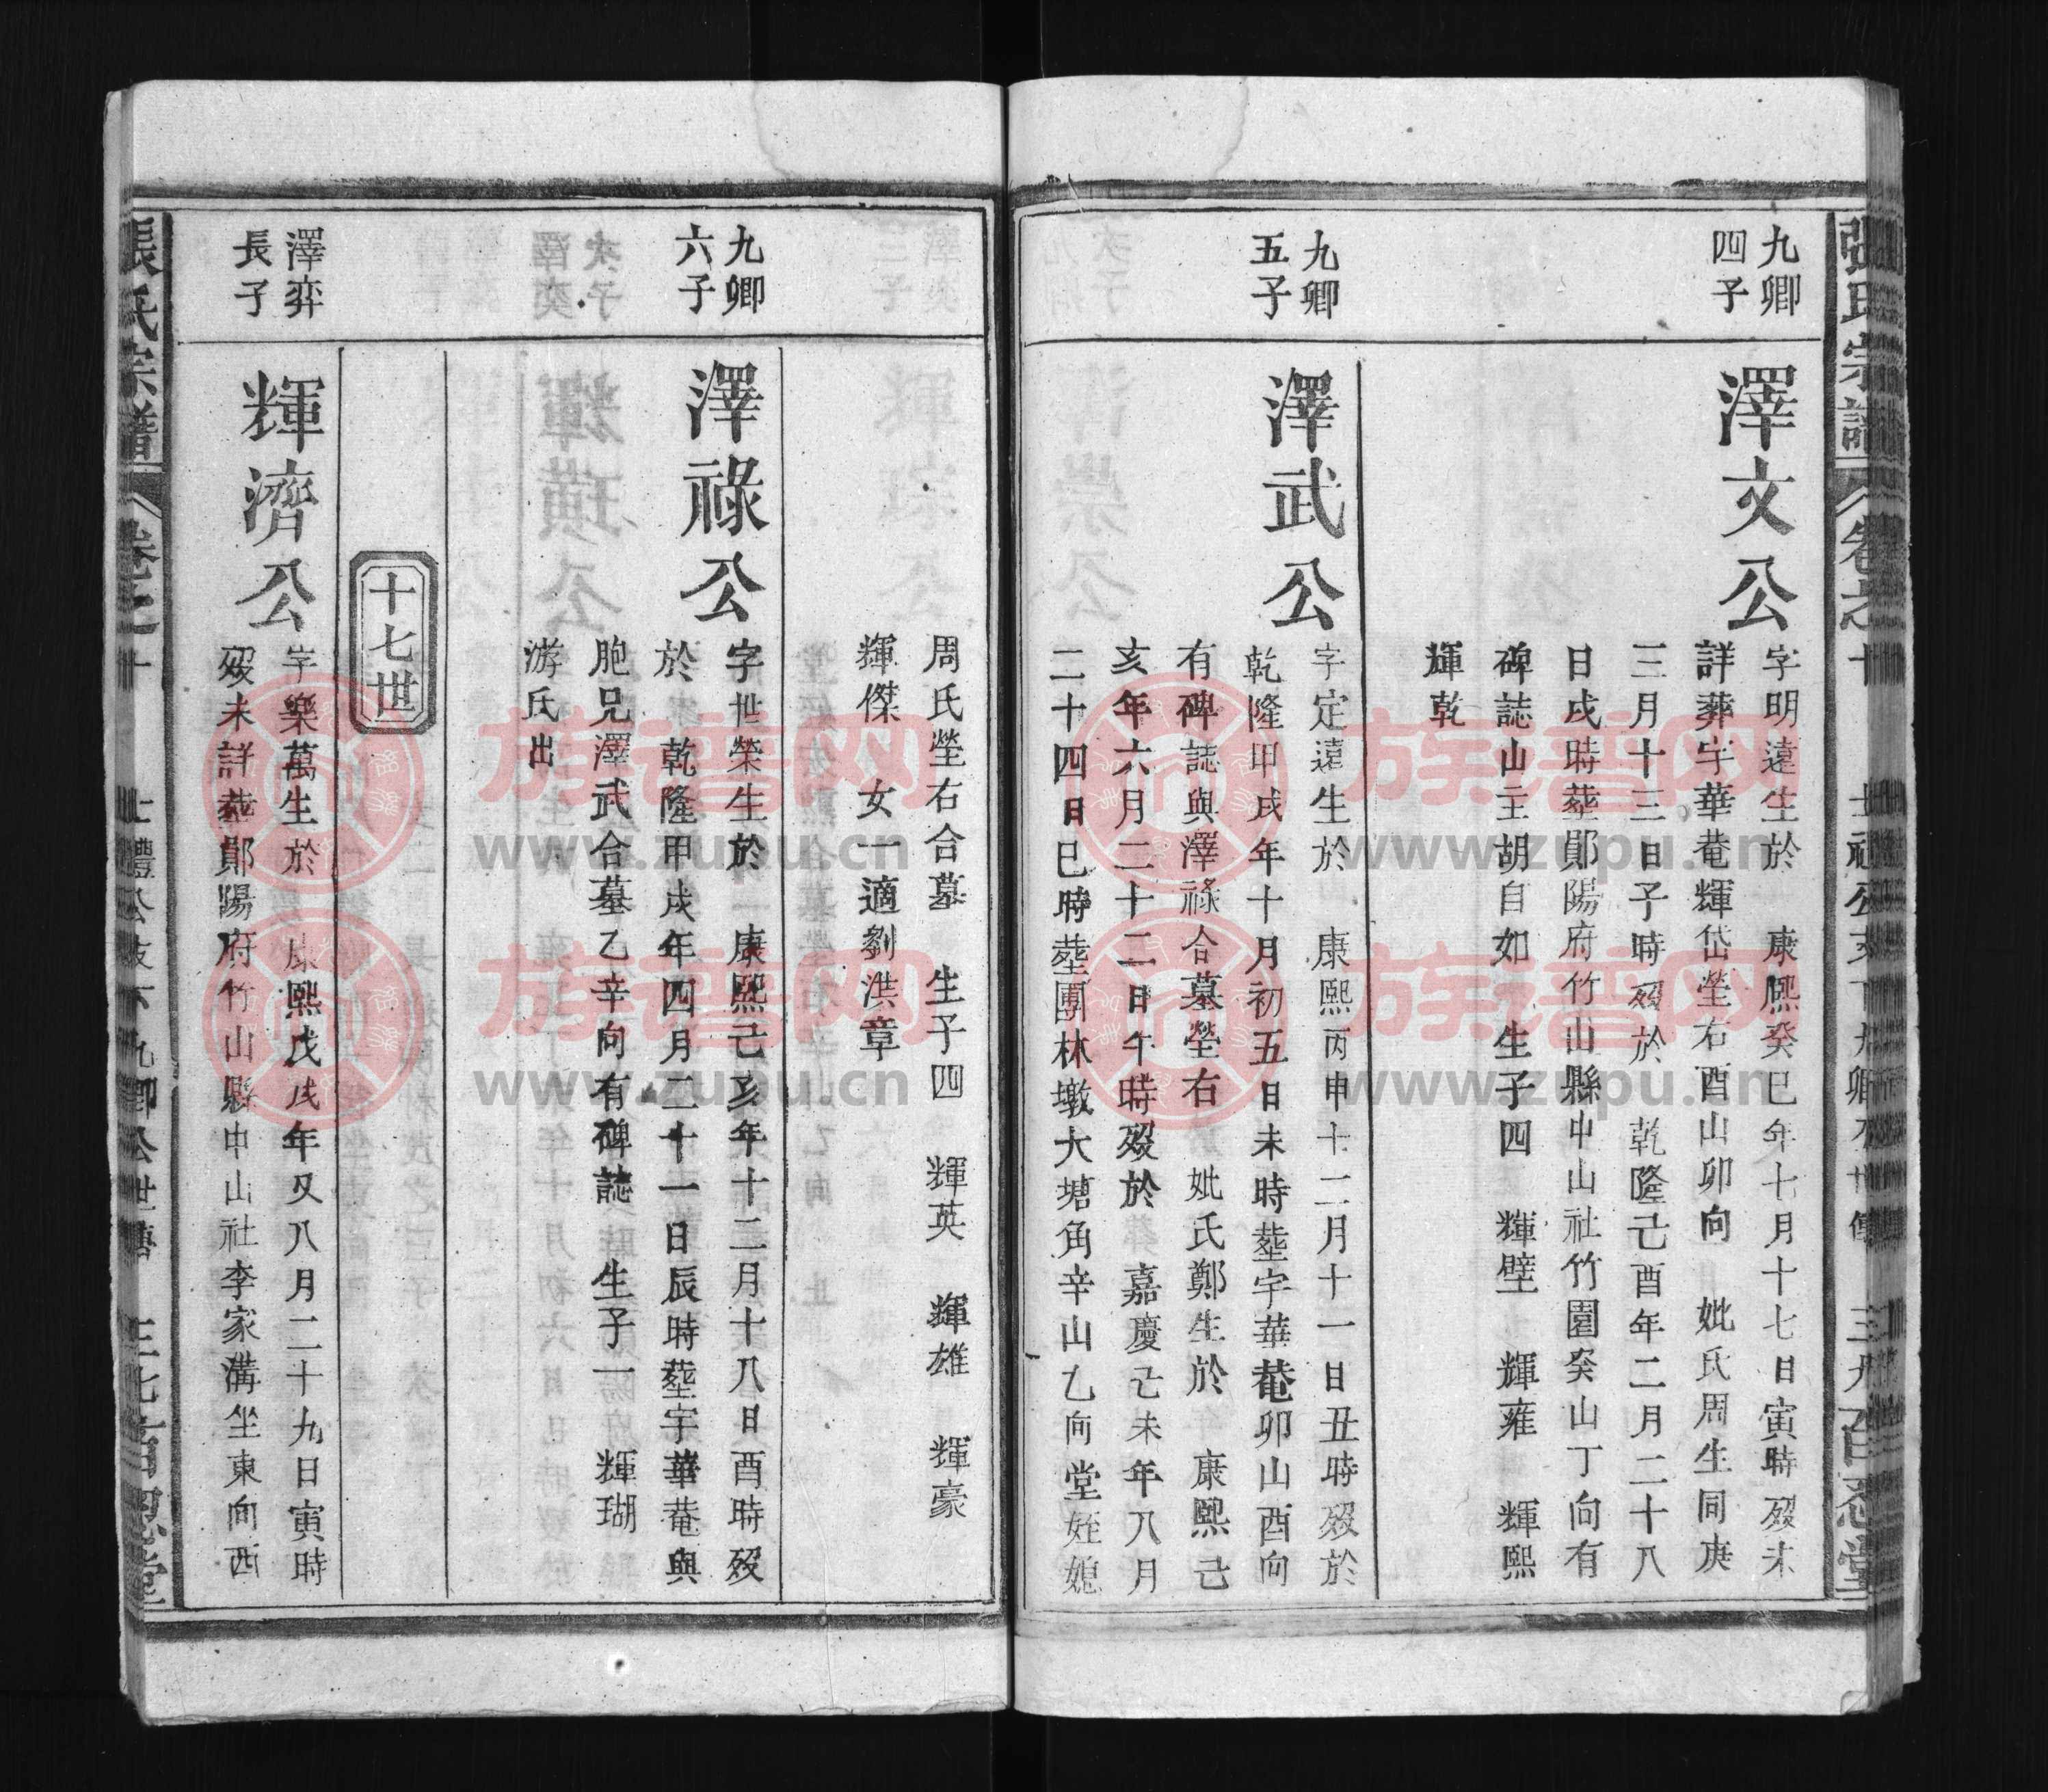 張氏宗譜
卷之十
三九百忍堂
九卿
四子
澤文公
字明遠生於　康熙癸巳年七月十七日寅時歿未
詳葬宇華菴輝岱塋右酉山卯向　妣氏周生同庚
三月十三日子時歿於　乾隆己酉年二月二十八
日戌時塟鄖陽府竹山縣中山社竹園癸山丁向有
碑誌山主胡自如　生子四　輝壁　輝雍　輝熙
輝乾
九卿
五子
澤武公
字定遠生於　康熙丙申十二月十一日丑時歿於
乾隆甲戌年十月初五日未時塟宇華菴卯山酉向
有碑誌與澤祿合墓塋右　妣氏鄭生於　康熙己
亥年六月二十二日午時歿於　嘉慶己未年八月
二十四日巳時塟團林墩大塘角辛山乙向堂姪媳
周氏塋右合墓　生子四　輝英　輝雄　輝豪
輝傑　女一適劉洪章
九卿
六子
澤祿公
字世榮生於　康熙己亥年十二月十八日酉時歿
於　乾隆甲戌年四月二十一日辰時塟宇華菴與
胞兄澤武合墓乙辛向有碑誌　生子一　輝瑚
游氏出
十七世
澤弈
長子
輝濟公
字樂萬生於　康熙戊戌年又八月二十九日寅時
歿未詳塟鄖陽府竹山縣中山社李家溝坐東向西
張氏宗譜
卷之十
九卿公世
堂
族谱网
www.zupu.cn
族谱网
www.zupu.cn
族谱网
www.zupu.cn
族谱网
www.zupu.cn